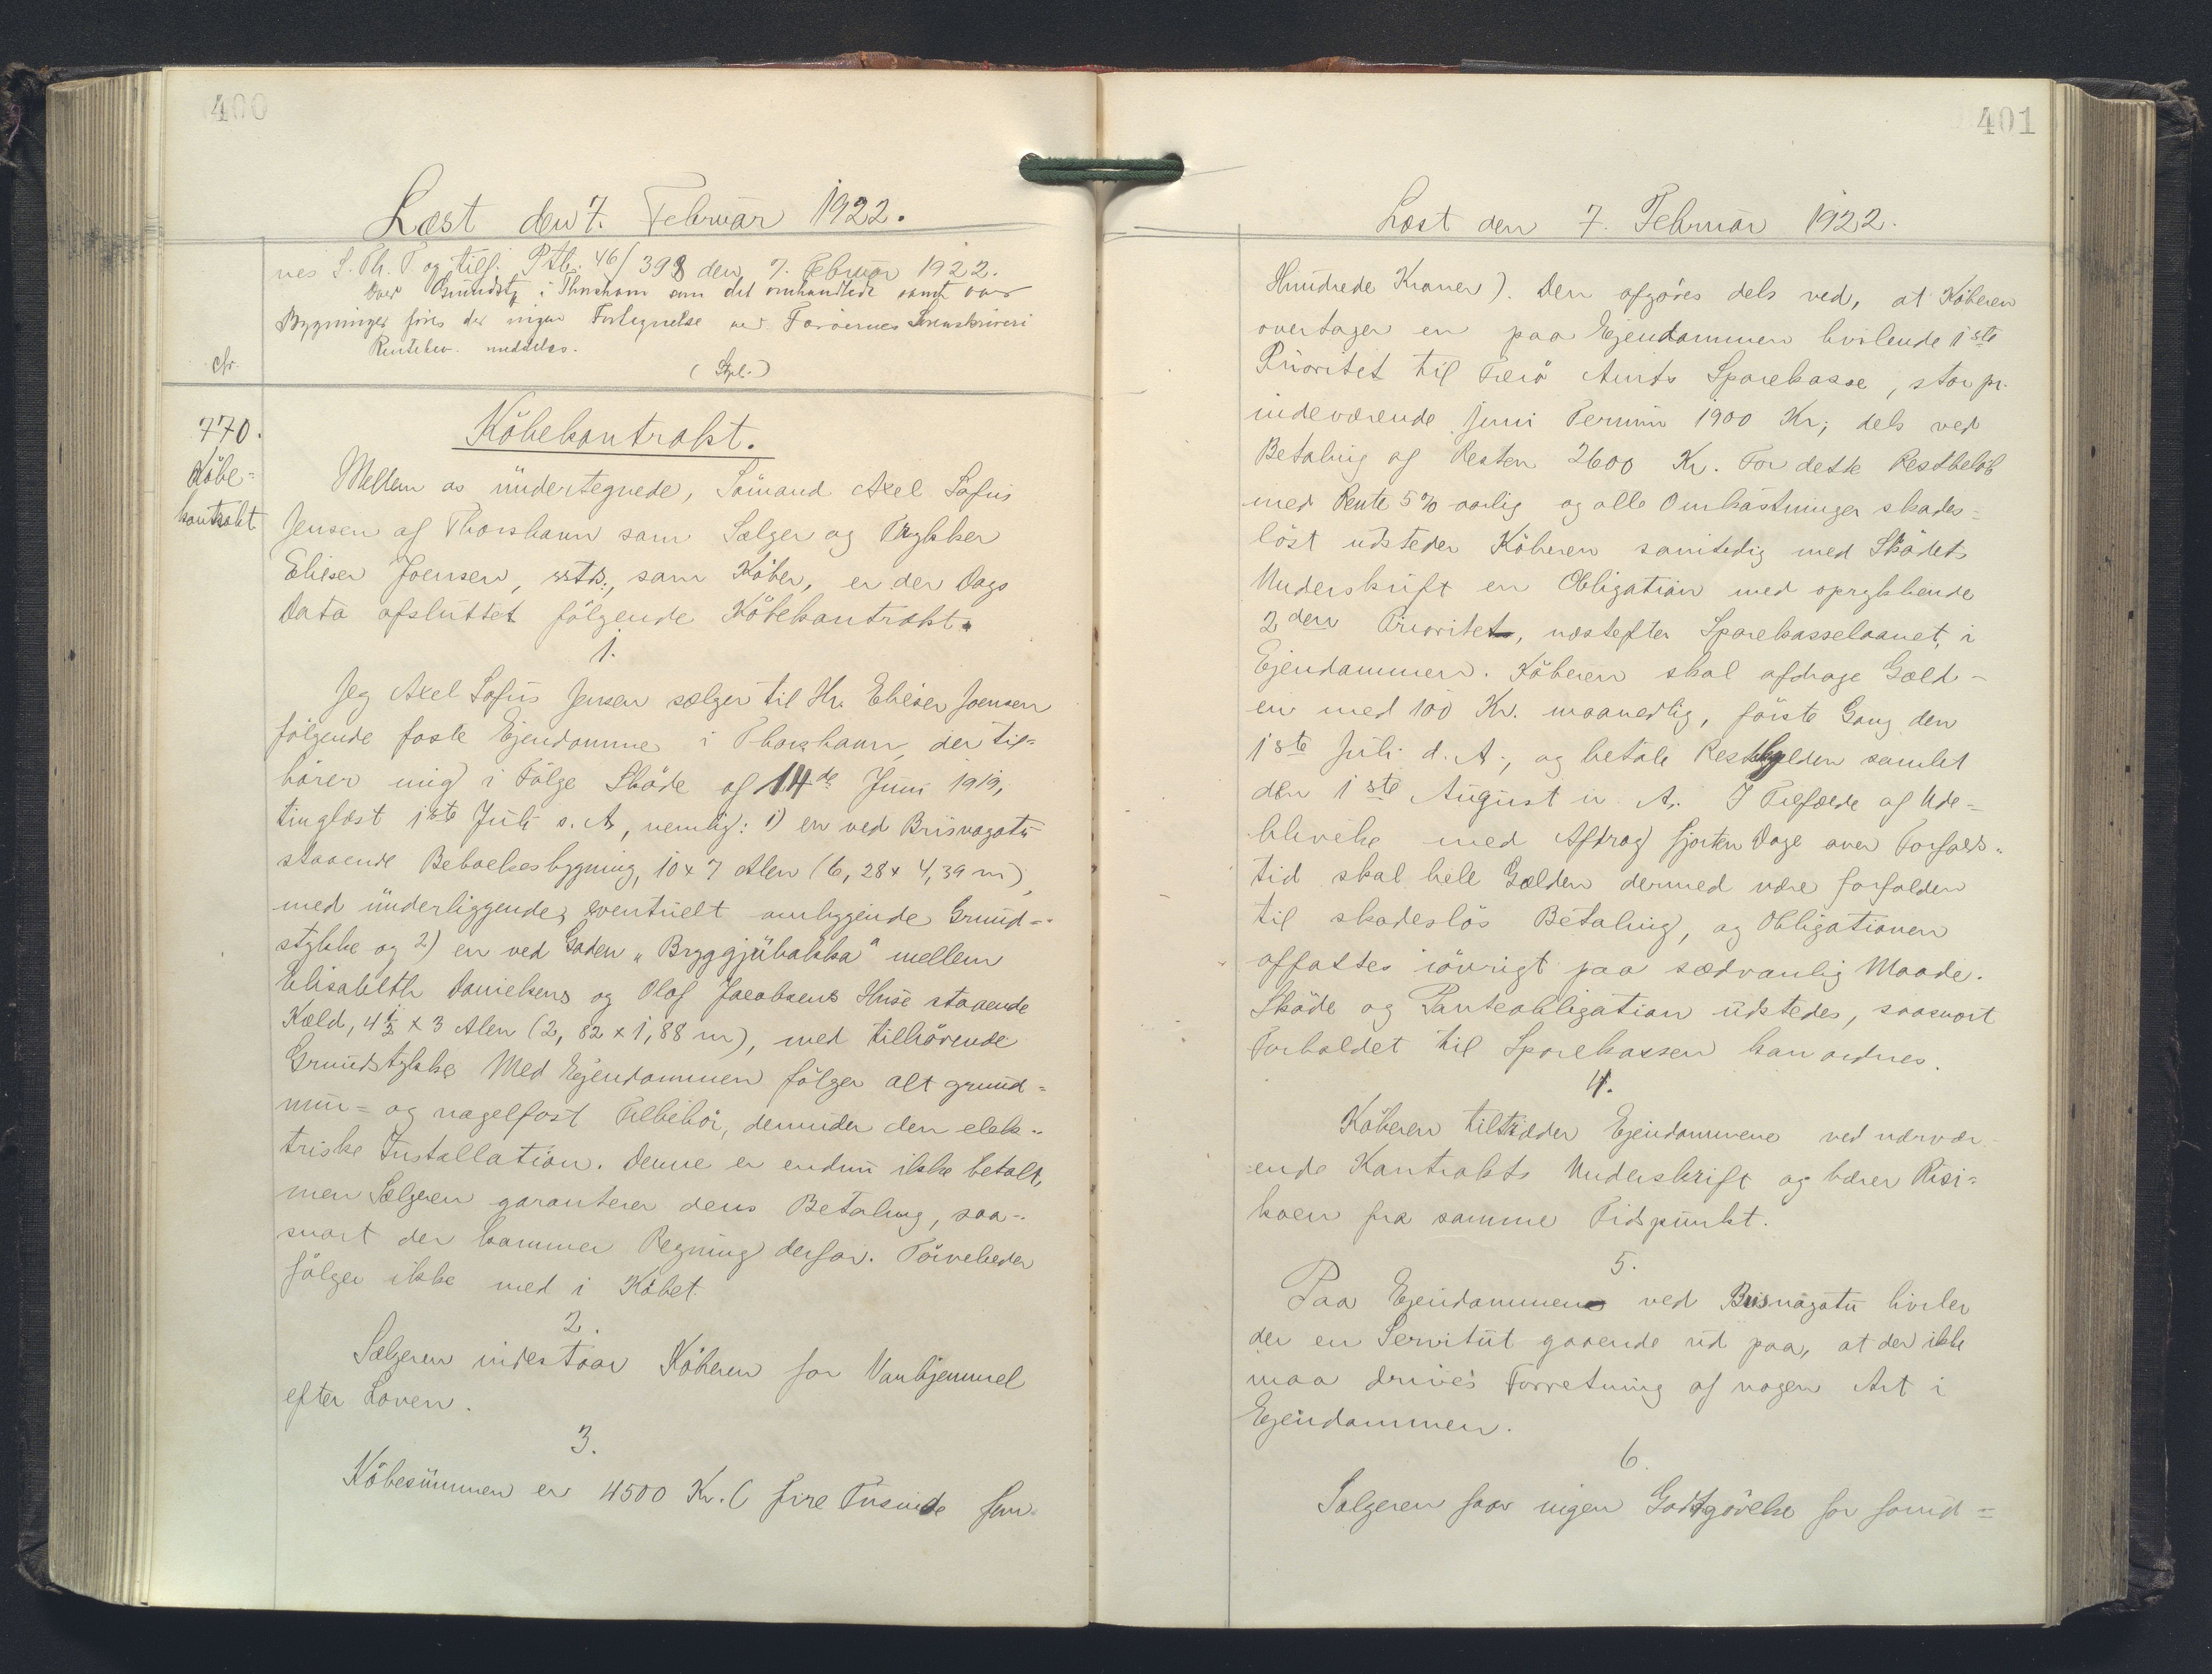 400
Læst den 7. Februar 1922.
nes S. Th. P. og tilf. Ptb. 46/398 den 7. Februar 1922.
Over Grundstk. i Thorshavn som det omhandlede samt over
Bygninger föres der ingen Fortegnelse ved Færöernes Sorenskriveri
Rentebev. meddeles.
(Spl.)
770.
Köbe=
kontrakt
Köbekontrakt.
Mellem os undertegnede, Sömand Axel Sofus
Jensen af Thorshavn som Sælger og Trykker
Elieser Joensen, ssts., som Köber, er der Dags
Dato afsluttet fölgende Köbekontrakt.
1.
Jeg Axel Sofus Jensen sælger til Hr. Elieser Joensen
fölgende faste Ejendomme i Thorshavn, der til=
hörer mig i Fölge Sköde af 14de Juni 1919,
tinglæst 1ste Juli s. A, nemlig: 1) en ved Brisnagøtu
staaende Beboelsesbygning, 10 x 7 Alen (6,28 x 4,39 m),
med underliggende, eventuelt omliggende Grund=
stykke og 2) en ved Gaden „Bryggjubakka" mellem
Elisabeth Danielsens og Olaf Jacobsens Huse staaende
Kæld, 4 1/2 x 3 Alen (2,82 x 1,88 m), med tilhörende
Grundstykke. Med Ejendommen fölger alt grund=
mur= og nagelfast Tilbehör, derunder den elek=
triske Installation. Denne er endnu ikke betalt,
men Sælgeren garanterer dens Betaling, saa=
snart der kommer Regning derfor. Törveheder
fölger ikke med i Köbet
2.
Sælgeren indestaar Köberen for Vanhjemmel
efter Loven.
3.
Köbesummen er 4500 Kr. (fire Tusinde fem
401
Læst den 7. Februar 1922.
Hundrede Kroner). Den afgöres dels ved, at Köberen
overtager en paa Ejendommen hvilende 1ste
Prioritet til Færö Amts Sparekasse, stor pr.
indeværende Juni Termin 1900 Kr; dels ved
Betaling af Resten 2600 Kr. For dette Restbelöb
med Rente 5% aarlig og alle Omkostninger skades=
löst udsteder Köberen samtidig med Sködets
Underskrift en Obligation med oprykkende
2den Prioritet, næstefter Sparekasselaanet, i
Ejendommen. Köberen skal afdrage Gæld=
en med 100 Kr. maanedlig, förste Gang den
1ste Juli d. A., og betale Restgælden samlet
den 1ste August n. A. I Tilfælde af Ude=
blivelse med Afdrag fjorten Dage over Forfalds=
tid skal hele Gælden dermed være forfalden
til skadeslös Betaling, og Obligationen
affattes iövrigt paa sædvanlig Maade.
Sköde og Panteobligation udstedes, saasnart
Forholdet til Sparekassen kan ordnes.
4.
Köberen tiltræder Ejendommene ved nærvær=
ende Kontrakts Underskrift og bærer Risi=
koen fra samme Tidspunkt.
5.
Paa Ejendommen ved Brisnagøtu hviler
der en Servitut gaaende ud paa, at der ikke
maa drives Forretning af nogen Art i
Ejendommen.
6.
Sælgeren faar ingen Godtgörelse for forud=